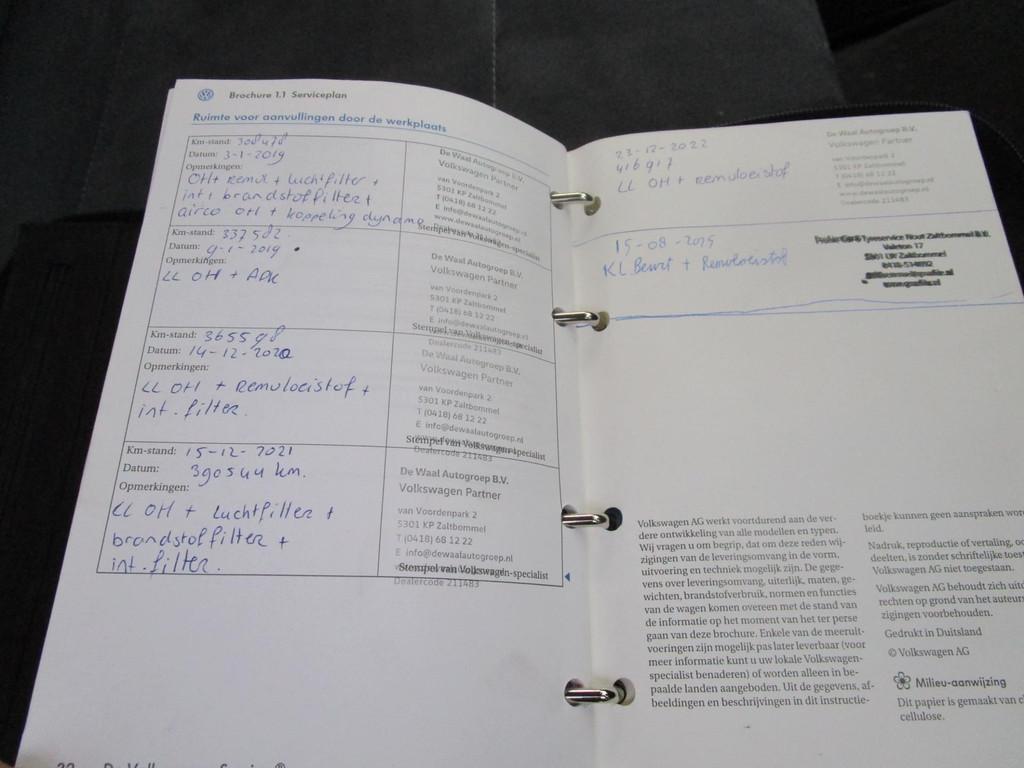 Brochure 1.1 Serviceplan
Ruimte voor aanvullingen door de werkplaats
Km-stand: 308478
Datum: 3-1-2019
Opmerkingen:
OH + remvl + luchtfilter +
int + brandstoffilter +
airco OH + koppeling dynamo
De Waal Autogroep B.V.
Volkswagen Partner
van Voordenpark 2
5301 KP Zaltbommel
T (0418) 68 12 22
E info@dewaalautogroep.nl
www.dewaalautogroep.nl
Stempel van Volkswagen-specialist
Km-stand: 337582
Datum: 9-1-2019
Opmerkingen:
LL OH + APK
De Waal Autogroep B.V.
Volkswagen Partner
van Voordenpark 2
5301 KP Zaltbommel
T (0418) 68 12 22
E info@dewaalautogroep.nl
Stempel van Volkswagen-specialist
Dealercode 211483
Km-stand: 365598
Datum: 14-12-2020
Opmerkingen:
LL OH + Remvloeistof +
int. filter
De Waal Autogroep B.V.
Volkswagen Partner
van Voordenpark 2
5301 KP Zaltbommel
T (0418) 68 12 22
E info@dewaalautogroep.nl
Stempel van Volkswagen-specialist
Dealercode 211483
Km-stand: 15-12-2021
Datum: 390544 km.
Opmerkingen:
LL OH + Luchtfilter +
brandstoffilter +
int. filter.
De Waal Autogroep B.V.
Volkswagen Partner
van Voordenpark 2
5301 KP Zaltbommel
T (0418) 68 12 22
E info@dewaalautogroep.nl
Stempel van Volkswagen-specialist
Dealercode 211483
23-12-2022
416917
LL OH + remvloeistof
De Waal Autogroep B.V.
Volkswagen Partner
van Voordenpark 2
5301 KP Zaltbommel
T (0418) 68 12 22
E info@dewaalautogroep.nl
www.dewaalautogroep.nl
Dealercode 211483
15-08-2025
KL Beurt + Remvloeistof
Tyreservice Hout Zaltbommel B.V.
Volkswagen AG werkt voortdurend aan de ver-
dere ontwikkeling van alle modellen en typen.
Wij vragen u om begrip, dat om deze reden wij-
zigingen van de leveringsomvang in de vorm,
uitvoering en techniek mogelijk zijn. De gege-
vens over leveringsomvang, uiterlijk, maten, ge-
wichten, brandstofverbruik, normen en functies
van de wagen komen overeen met de stand van
de informatie op het moment van het ter perse
gaan van deze brochure. Enkele van de meeruit-
voeringen zijn mogelijk pas later leverbaar (voor
meer informatie kunt u uw lokale Volkswagen-
specialist benaderen) of worden alleen in be-
paalde landen aangeboden. Uit de gegevens, af-
beeldingen en beschrijvingen in dit instructie-
boekje kunnen geen aanspraken wor
leid.
Nadruk, reproductie of vertaling, oo
deelten, is zonder schriftelijke toest
Volkswagen AG niet toegestaan.
Volkswagen AG behoudt zich uit
rechten op grond van het auteurs
zigingen voorbehouden.
Gedrukt in Duitsland
© Volkswagen AG
Milieu-aanwijzing
Dit papier is gemaakt van c
cellulose.